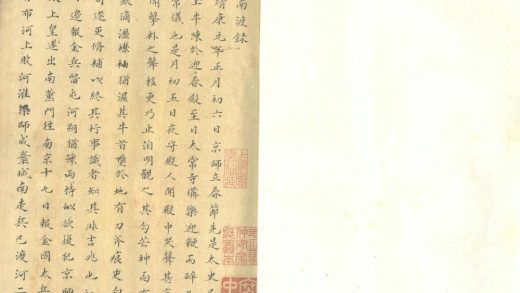 南渡錄
靖康元年正月初六日京師立春節先是太史
土牛陳於迎春殿至日太常寺備樂迎鞭而碎
常儀也是月初五日夜守殿人聞殿中哭聲甚
聞擊朴之聲移更乃止洎明觀之其勾芒神面有
淚滴濕襟袖猶濕其牛首墮於地有刀斧痕吏白
司遂更脩補以終其行事識者知其非吉兆也
邊報金兵留屯河朔猶豫兩持似欲援犯京
上皇遂出南薰門往南京十九日報金國太
布河上攻河淮梁師成棄城南走兵已渡河二